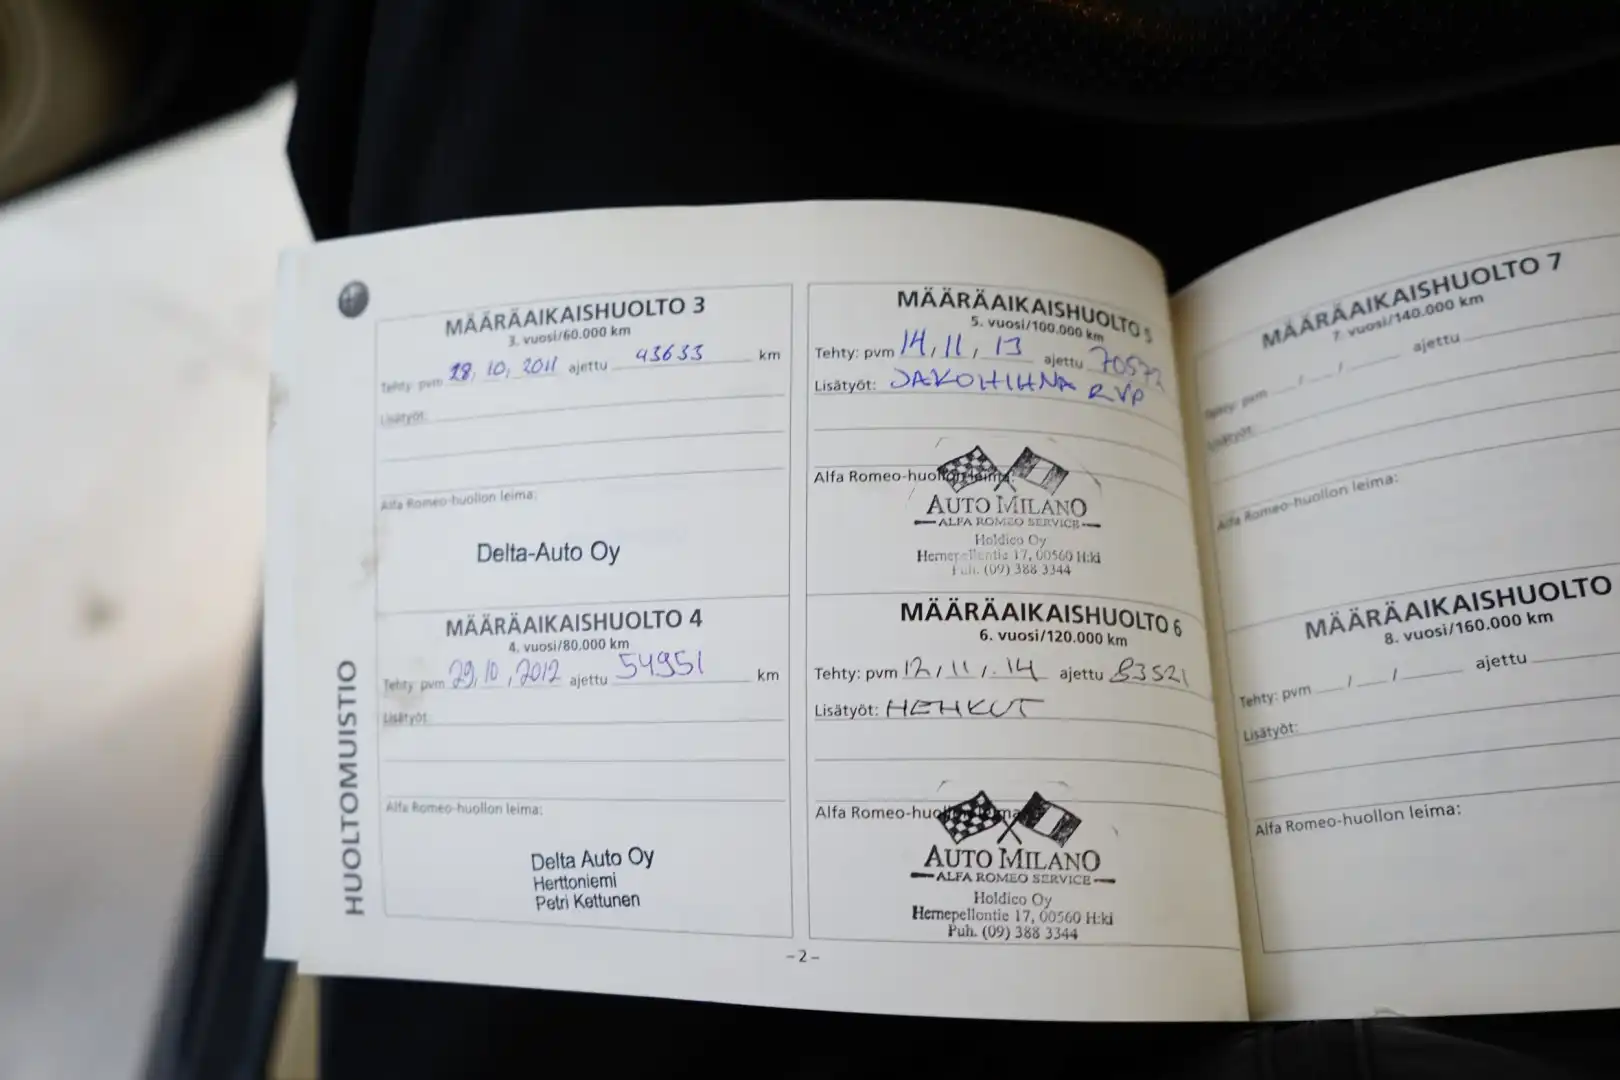 HUOLTOMUISTIO
MÄÄRÄAIKAISHUOLTO 3
3. vuosi/60.000 km
Tehty: pvm 28, 10, 2011 ajettu 43633 km
Lisätyöt:
Alfa Romeo-huollon leima:
Delta-Auto Oy
MÄÄRÄAIKAISHUOLTO 4
4. vuosi/80.000 km
Tehty: pvm 29, 10, 2012 ajettu 54951 km
Lisätyöt:
Alfa Romeo-huollon leima:
Delta Auto Oy
Herttoniemi
Petri Kettunen
MÄÄRÄAIKAISHUOLTO 5
5. vuosi/100.000 km
Tehty: pvm 14, 11, 13 ajettu 70572
Lisätyöt: JAKOHIHNA RVP
Alfa Romeo-huollon leima:
AUTO MILANO
ALFA ROMEO SERVICE
Holdico Oy
Hernepellontie 17, 00560 H:ki
Puh. (09) 388 3344
MÄÄRÄAIKAISHUOLTO 6
6. vuosi/120.000 km
Tehty: pvm 12, 11, 14 ajettu 83521
Lisätyöt: HEHKUT
Alfa Romeo-huollon leima:
AUTO MILANO
ALFA ROMEO SERVICE
Holdico Oy
Hernepellontie 17, 00560 H:ki
Puh. (09) 388 3344
– 2 –
MÄÄRÄAIKAISHUOLTO 7
7. vuosi/140.000 km
Tehty: pvm / / ajettu
Lisätyöt:
Alfa Romeo-huollon leima:
MÄÄRÄAIKAISHUOLTO
8. vuosi/160.000 km
Tehty: pvm / / ajettu
Lisätyöt:
Alfa Romeo-huollon leima: